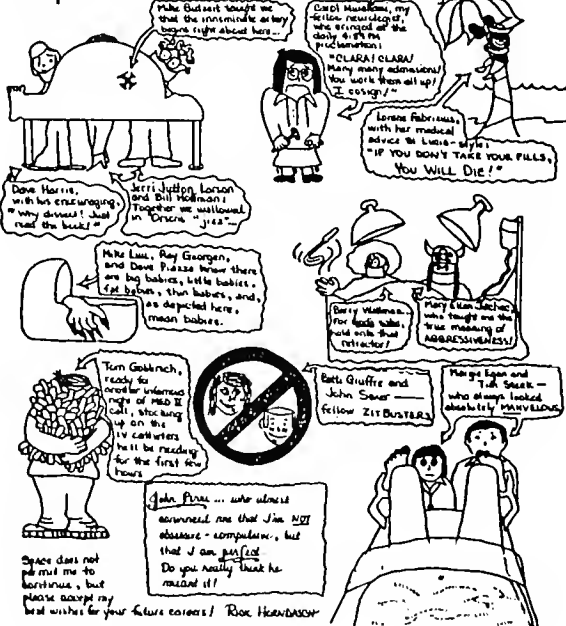 Mike Butzart taught me
that the innominate artery
begins right about here...
Carol Miyashiro, my
fellow neurologist,
who cringed at the
daily 4:59 PM
proclamation:
"CLARA! CLARA!
Many many admissions!
You work them all up!
I cosign!"
Lorene Fabricius,
with her medical
advice St. Lucia-style:
"IF YOU DON'T TAKE YOUR PILLS,
YOU WILL DIE!"
Dave Harris,
with his encouraging,
"Why dissect! Just
read the book!"
Jerri Lorson
and Bill Hoffman:
Together we wallowed
in "juice"...
Mike Luis, Ray Georgen,
and Dave Piazza know there
are big babies, little babies,
fat babies, thin babies, and,
as depicted here,
mean babies.
Barry
For God's sake,
hold onto that
retractor!
Mary Ellen
who taught me the
true meaning of
AGGRESSIVENESS!
Tom Gabbrich,
ready for
another infamous
night of MED II
call, stocking
up on the
IV catheters
he'll be needing
for the first few
hours
Beth Giuffre and
John Sauer —
fellow ZIT BUSTERS
Margie Egan and
Tish —
who always looked
absolutely MARVELOUS
John ... who almost
convinced me that I'm NOT
obsessive-compulsive, but
that I am perfect.
Do you really think he
meant it?
Space does not
permit me to
continue, but
please accept my
best wishes for your future careers! RICK HORNDASCH